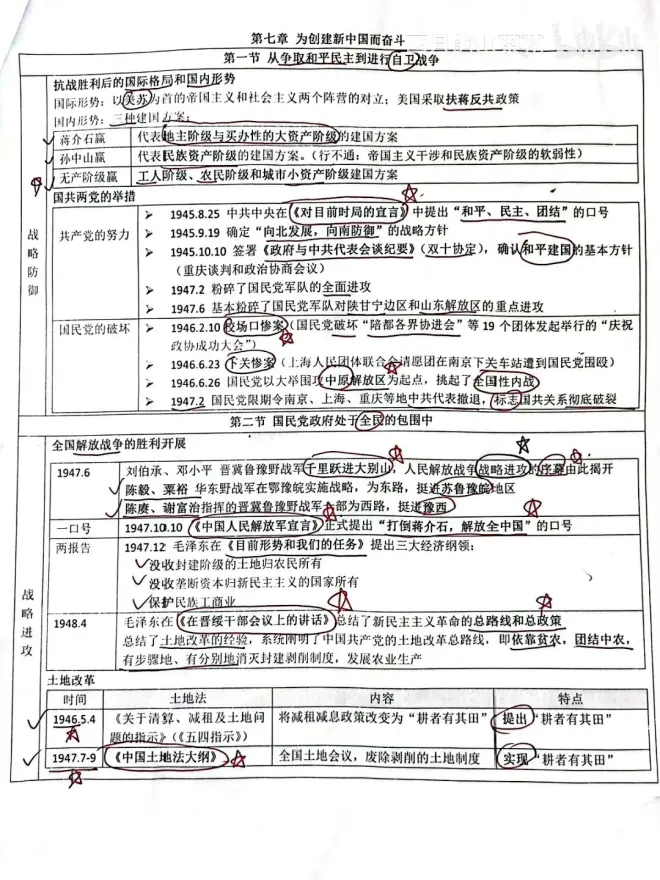 第七章 为创建新中国而奋斗
第一节 从争取和平民主到进行自卫战争
抗战胜利后的国际格局和国内形势
国际形势：以美苏为首的帝国主义和社会主义两个阵营的对立；美国采取扶蒋反共政策
国内形势：三种建国方案：
蒋介石赢 代表地主阶级与买办性的大资产阶级的建国方案
孙中山赢 代表民族资产阶级的建国方案。（行不通：帝国主义干涉和民族资产阶级的软弱性）
无产阶级赢 工人阶级、农民阶级和城市小资产阶级建国方案
国共两党的举措
战略防御
共产党的努力
➢ 1945.8.25 中共中央在《对目前时局的宣言》中提出“和平、民主、团结”的口号
➢ 1945.9.19 确定“向北发展，向南防御”的战略方针
➢ 1945.10.10 签署《政府与中共代表会谈纪要》（双十协定），确认和平建国的基本方针
（重庆谈判和政治协商会议）
➢ 1947.2 粉碎了国民党军队的全面进攻
➢ 1947.6 基本粉碎了国民党军队对陕甘宁边区和山东解放区的重点进攻
国民党的破坏
➢ 1946.2.10 校场口惨案（国民党破坏“陪都各界协进会”等 19 个团体发起举行的“庆祝
政协成功大会”）
➢ 1946.6.23 下关惨案（上海人民团体联合会请愿团在南京下关车站遭到国民党围殴）
➢ 1946.6.26 国民党以大举围攻中原解放区为起点，挑起了全国性内战
➢ 1947.2 国民党限期令南京、上海、重庆等地中共代表撤退，标志国共关系彻底破裂
第二节 国民党政府处于全民的包围中
战略进攻
全国解放战争的胜利开展
1947.6 刘伯承、邓小平 晋冀鲁豫野战军千里跃进大别山，人民解放战争战略进攻的序幕由此揭开
陈毅、粟裕 华东野战军在鄂豫皖实施战略，为东路，挺进苏鲁豫皖地区
陈赓、谢富治指挥的晋冀鲁豫野战军一部为西路，挺进豫西
一口号 1947.10.10 《中国人民解放军宣言》正式提出“打倒蒋介石，解放全中国”的口号
两报告 1947.12 毛泽东在《目前形势和我们的任务》提出三大经济纲领：
✓没收封建阶级的土地归农民所有
✓没收垄断资本归新民主主义的国家所有
✓保护民族工商业
1948.4 毛泽东在《在晋绥干部会议上的讲话》总结了新民主主义革命的总路线和总政策
总结了土地改革的经验，系统阐明了中国共产党的土地改革总路线，即依靠贫农，团结中农，
有步骤地、有分别地消灭封建剥削制度，发展农业生产
土地改革
时间 土地法 内容 特点
1946.5.4 《关于清算、减租及土地问
题的指示》（《五四指示》） 将减租减息政策改变为“耕者有其田” 提出“耕者有其田”
1947.7-9 《中国土地法大纲》 全国土地会议，废除剥削的土地制度 实现“耕者有其田”